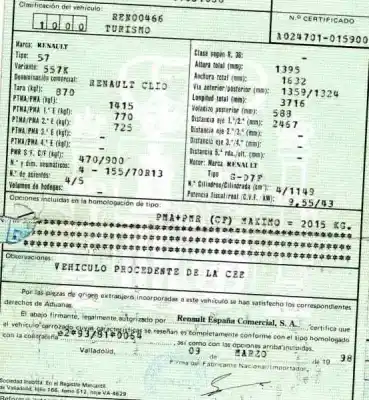 Clasificación del vehículo:
1000
REN00466
TURISMO
N.º CERTIFICADO
A024701-015900
Marca: RENAULT
Tipo: 57
Variante: 557K
Denominación comercial: RENAULT CLIO
Tara (kgf): 870
PTMA/PMA (kgf): 1415
PTMA/PMA 1.º E (kgf): 770
PTMA/PMA 2.º E (kgf): 725
PTMA/PMA 3.º E (kgf): -
PTMA/PMA 4.º E (kgf): -
PMR S F, C/F (kgf): 470/900
N.º y dim. neumáticos: 4 - 155/70R13
N.º de asientos: 4/5
Volumen de bodegas: -
Clase según R. 36: -
Altura total (mm): 1395
Anchura total (mm): 1632
Vía anterior/posterior (mm): 1359/1324
Longitud total (mm): 3716
Voladizo posterior (mm): 588
Distancia eje 1.º/2.º (mm): 2467
Distancia eje 2.º/3.º (mm): -
Distancia eje 3.º/4.º (mm): -
Motor: Marca RENAULT
Tipo G-D7F
N.º Cilindros/Cilindrada (cm³): 4/1149
Potencia fiscal/real (C.V.F./kW): 9,55/43
Opciones incluidas en la homologación de tipo:
PMA+PMR (CF) MAXIMO = 2015 KG.
Observaciones:
VEHICULO PROCEDENTE DE LA CEE
Por las piezas de origen extranjero incorporadas a este vehículo se han satisfecho los correspondientes
derechos de Aduanas.
El abajo firmante, legalmente autorizado por Renault España Comercial, S. A. certifica que
el vehículo carrozado cuyas características se reseñan es completamente conforme con el tipo homologado
con la contraseña e2*93/81*0064 así como con las opciones arriba incluidas.
Valladolid, 09 de MARZO de 1998
Firma del Fabricante Nacional/Importador,
Sociedad Inscrita: En el Registro Mercantil
de Valladolid, folio 166, tomo 512, hoja VA-4629